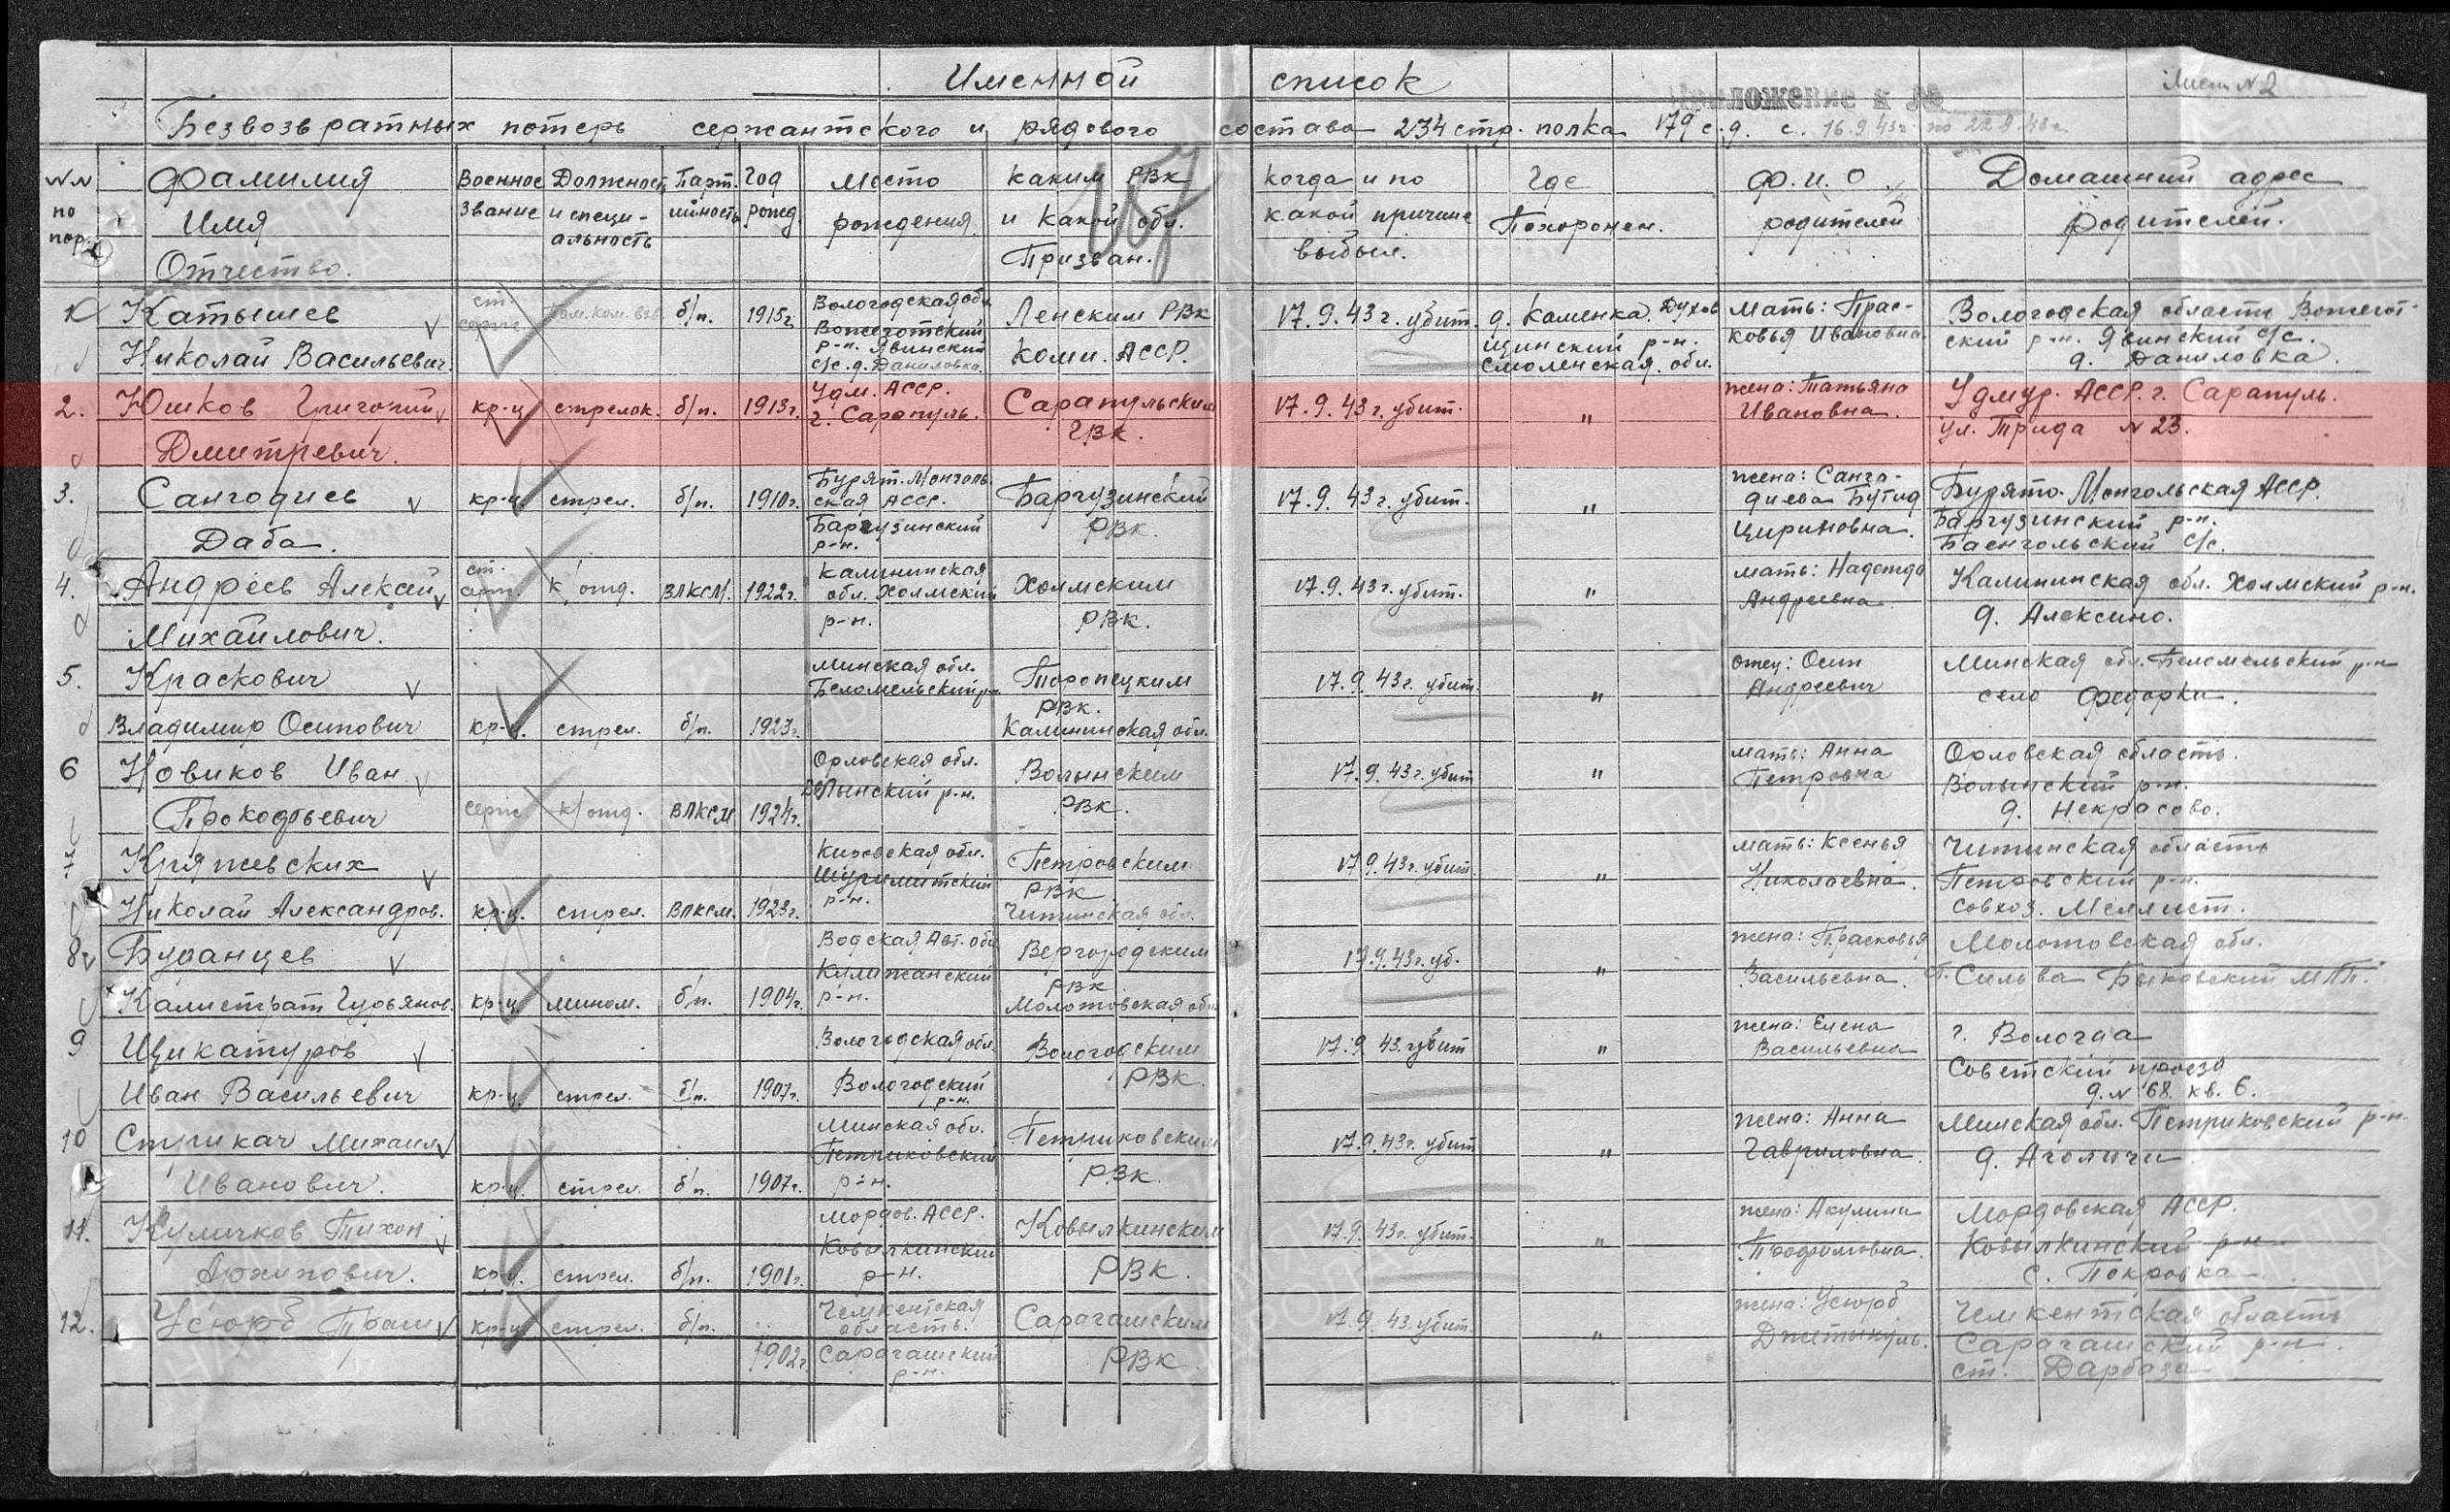 Именной список
Лист № 2
Приложение к №
Безвозвратных потерь сержантского и рядового состава 234 стр. полка 179 с.д. с. 16.9.43г. по 22.9.43г.
№№ по пор.
Фамилия Имя Отчество.
Военное звание
Должност и специальность
Парт.
Год рожд.
Место рождения.
Каким РВК и какой обл. Призван.
Когда и по какой причине выбыл.
Где Похоронен.
Ф.И.О. родителей
Домашний адрес родителей.
167
1
Катышев
Николай Васильевич.
ст. серж.
пом. ком. взв.
б/п.
1915г.
Вологодская обл.
Вожеготский
р-н. Явинский
с/с. д. Даниловка.
Ленским РВК
Коми. АССР.
17.9.43г. убит.
д. Каменка. Духов
щинский р-н.
Смоленская. обл.
мать: Прас-
ковья Ивановна.
Вологодская области Вожегот-
ский р-н. Явинский с/с.
д. Даниловка.
2.
Юшков Григорий
Дмитревич.
кр-ц
стрелок.
б/п.
1913г.
Удм. АССР.
г. Сарапуль.
Сарапульским
ГВК.
17.9.43г. убит.
"
жена: Татьяна
Ивановна.
Удмур. АССР. г. Сарапуль.
ул. Труда № 23.
3.
Сангодиев
Даба.
кр-ц
стрел.
б/п.
1910г.
Бурят. Монголь
ская АССР.
Баргузинский
р-н.
Баргузинский
РВК
17.9.43г. убит.
"
жена: Санго-
диева Бутид
Цириновна.
Бурято-Монгольская АССР.
Баргузинский р-н.
Баенгольский с/с.
4.
Андреев Алексей
Михайлович.
ст.
серж.
к/отд.
ВЛКСМ.
1922г.
Калининская
обл. Холмский
р-н.
Холмским
РВК.
17.9.43г. убит.
"
мать: Надежда
Андреевна
Калининская обл. Холмский р-н.
д. Алексино.
5.
Краскович
Владимир Осипович
кр-ц.
стрел.
б/п.
1923г.
Минская обл.
Беломельский р-н
Торопецким
РВК.
Калининская обл.
17.9.43г. убит.
"
отец: Осип
Андреевич
Минская обл. Беломельский р-н
село Федорки.
6
Новиков Иван
Прокофьевич
серж
к/отд.
ВЛКСМ
1924г.
Орловская обл.
Волынский р-н.
Волынским
РВК.
17.9.43г. убит
"
мать: Анна
Петровна
Орловская область.
Волынский р-н.
д. Некрасово.
7
Кряжевских
Николай Александров.
кр-ц.
стрел.
ВЛКСМ.
1923г.
Кировская обл.
р-н.
Петровским
РВК
Читинская обл.
17.9.43г. убит.
"
мать: Ксенья
Николаевна.
Читинская область
Петровский р-н.
совхоз.
8
Буданцев
Калистрат Гурьянов.
кр-ц
мином.
б/п.
1904г.
р-н.
РВК
Молотовская обл
17.9.43г. уб.
"
жена: Прасковья
Васильевна.
Молотовская обл.
9
Щикатуров
Иван Васильевич
кр-ц
стрел.
б/п.
1907г.
Вологодская обл.
Вологодский
р-н.
Вологодским
РВК
17.9.43г. убит
"
жена: Елена
Васильевна
г. Вологда
Советский проезд
д. № 68. кв. 6.
10
Стрикач Михаил
Иванович.
кр-ц.
стрел.
б/п.
1907г.
Минская обл.
Петриковский
р-н.
Петриковским
РВК.
17.9.43г. убит
"
жена: Анна
Гавриловна
Минская обл. Петриковский р-н.
д. Аголичи
11.
Куличков Тихон
Архипович.
кр-ц
стрел.
б/п.
1901г.
Мордов. АССР.
Ковылкинский
р-н.
Ковылкинским
РВК.
17.9.43г. убит.
"
жена: Акулина
Мордовская АССР.
Ковылкинский р-н
с. Покровка
12.
Усюрб
кр-ц
стрел.
б/п.
1902г
Чемкентская
область.
Сарагашский
р-н.
Сарагашским
РВК
17.9.43. убит
"
жена: Усюрб
Чемкентская область
Сарагашский р-н.
ст. Дарбаза